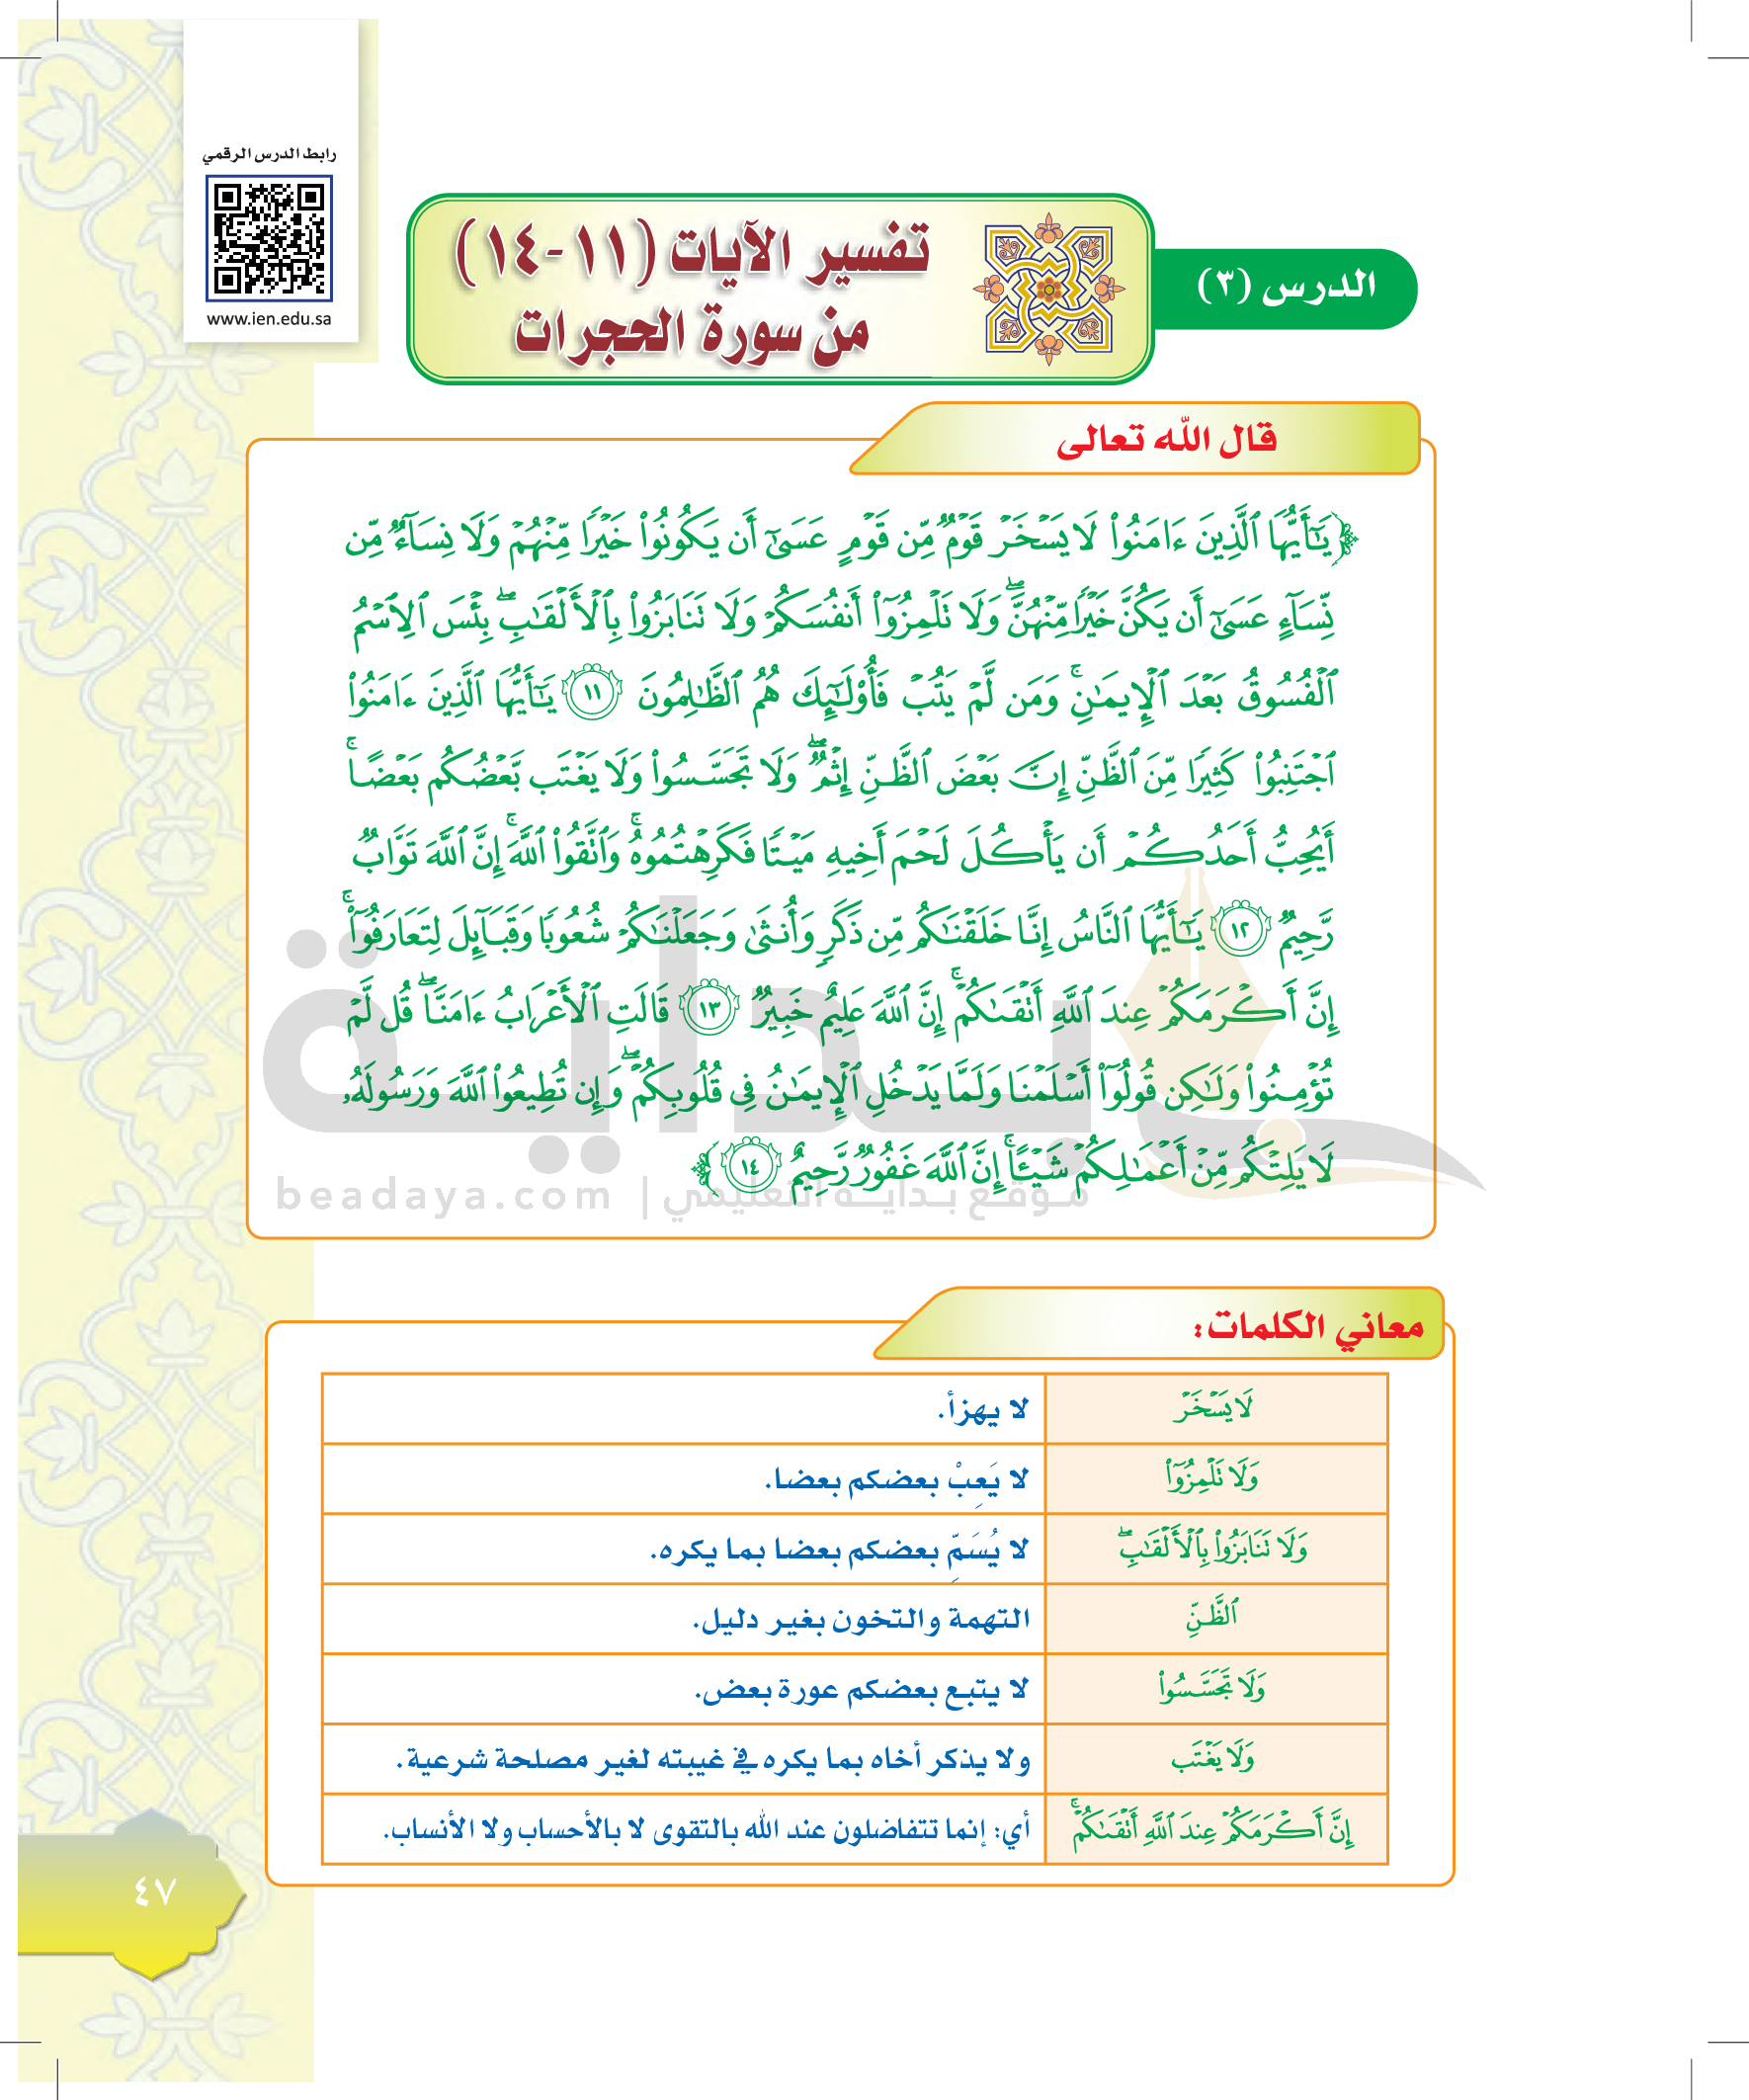 رابط الدرس الرقمي
www.ien.edu.sa
الدرس (٣)
تفسير الآيات (١١-١٤)
من سورة الحجرات
قال الله تعالى
﴿يَٰٓأَيُّهَا ٱلَّذِينَ ءَامَنُوا۟ لَا يَسْخَرْ قَوْمٌ مِّن قَوْمٍ عَسَىٰٓ أَن يَكُونُوا۟ خَيْرًا مِّنْهُمْ وَلَا نِسَآءٌ مِّن
نِّسَآءٍ عَسَىٰٓ أَن يَكُنَّ خَيْرًا مِّنْهُنَّ ۖ وَلَا تَلْمِزُوٓا۟ أَنفُسَكُمْ وَلَا تَنَابَزُوا۟ بِٱلْأَلْقَٰبِ ۖ بِئْسَ ٱلِٱسْمُ
ٱلْفُسُوقُ بَعْدَ ٱلْإِيمَٰنِ ۚ وَمَن لَّمْ يَتُبْ فَأُو۟لَٰٓئِكَ هُمُ ٱلظَّٰلِمُونَ ١١ يَٰٓأَيُّهَا ٱلَّذِينَ ءَامَنُوا۟
ٱجْتَنِبُوا۟ كَثِيرًا مِّنَ ٱلظَّنِّ إِنَّ بَعْضَ ٱلظَّنِّ إِثْمٌ ۖ وَلَا تَجَسَّسُوا۟ وَلَا يَغْتَب بَّعْضُكُم بَعْضًا ۚ
أَيُحِبُّ أَحَدُكُمْ أَن يَأْكُلَ لَحْمَ أَخِيهِ مَيْتًا فَكَرِهْتُمُوهُ ۚ وَٱتَّقُوا۟ ٱللَّهَ ۚ إِنَّ ٱللَّهَ تَوَّابٌ
رَّحِيمٌ ١٢ يَٰٓأَيُّهَا ٱلنَّاسُ إِنَّا خَلَقْنَٰكُم مِّن ذَكَرٍ وَأُنثَىٰ وَجَعَلْنَٰكُمْ شُعُوبًا وَقَبَآئِلَ لِتَعَارَفُوٓا۟ ۚ
إِنَّ أَكْرَمَكُمْ عِندَ ٱللَّهِ أَتْقَىٰكُمْ ۚ إِنَّ ٱللَّهَ عَلِيمٌ خَبِيرٌ ١٣ قَالَتِ ٱلْأَعْرَابُ ءَامَنَّا ۖ قُل لَّمْ
تُؤْمِنُوا۟ وَلَٰكِن قُولُوٓا۟ أَسْلَمْنَا وَلَمَّا يَدْخُلِ ٱلْإِيمَٰنُ فِى قُلُوبِكُمْ ۖ وَإِن تُطِيعُوا۟ ٱللَّهَ وَرَسُولَهُۥ
لَا يَلِتْكُم مِّنْ أَعْمَٰلِكُمْ شَيْـًٔا ۚ إِنَّ ٱللَّهَ غَفُورٌ رَّحِيمٌ ١٤﴾
بداية
موقع بداية التعليمي | beadaya.com
معاني الكلمات:
لَا يَسْخَرْ لا يهزأ.
وَلَا تَلْمِزُوٓا۟ لا يَعِبْ بعضكم بعضا.
وَلَا تَنَابَزُوا۟ بِٱلْأَلْقَٰبِ ۖ لا يُسَمِّ بعضكم بعضا بما يكره.
ٱلظَّنِّ التهمة والتخون بغير دليل.
وَلَا تَجَسَّسُوا۟ لا يتبع بعضكم عورة بعض.
وَلَا يَغْتَب ولا يذكر أخاه بما يكره في غيبته لغير مصلحة شرعية.
إِنَّ أَكْرَمَكُمْ عِندَ ٱللَّهِ أَتْقَىٰكُمْ ۚ أي: إنما تتفاضلون عند الله بالتقوى لا بالأحساب ولا الأنساب.
٤٧